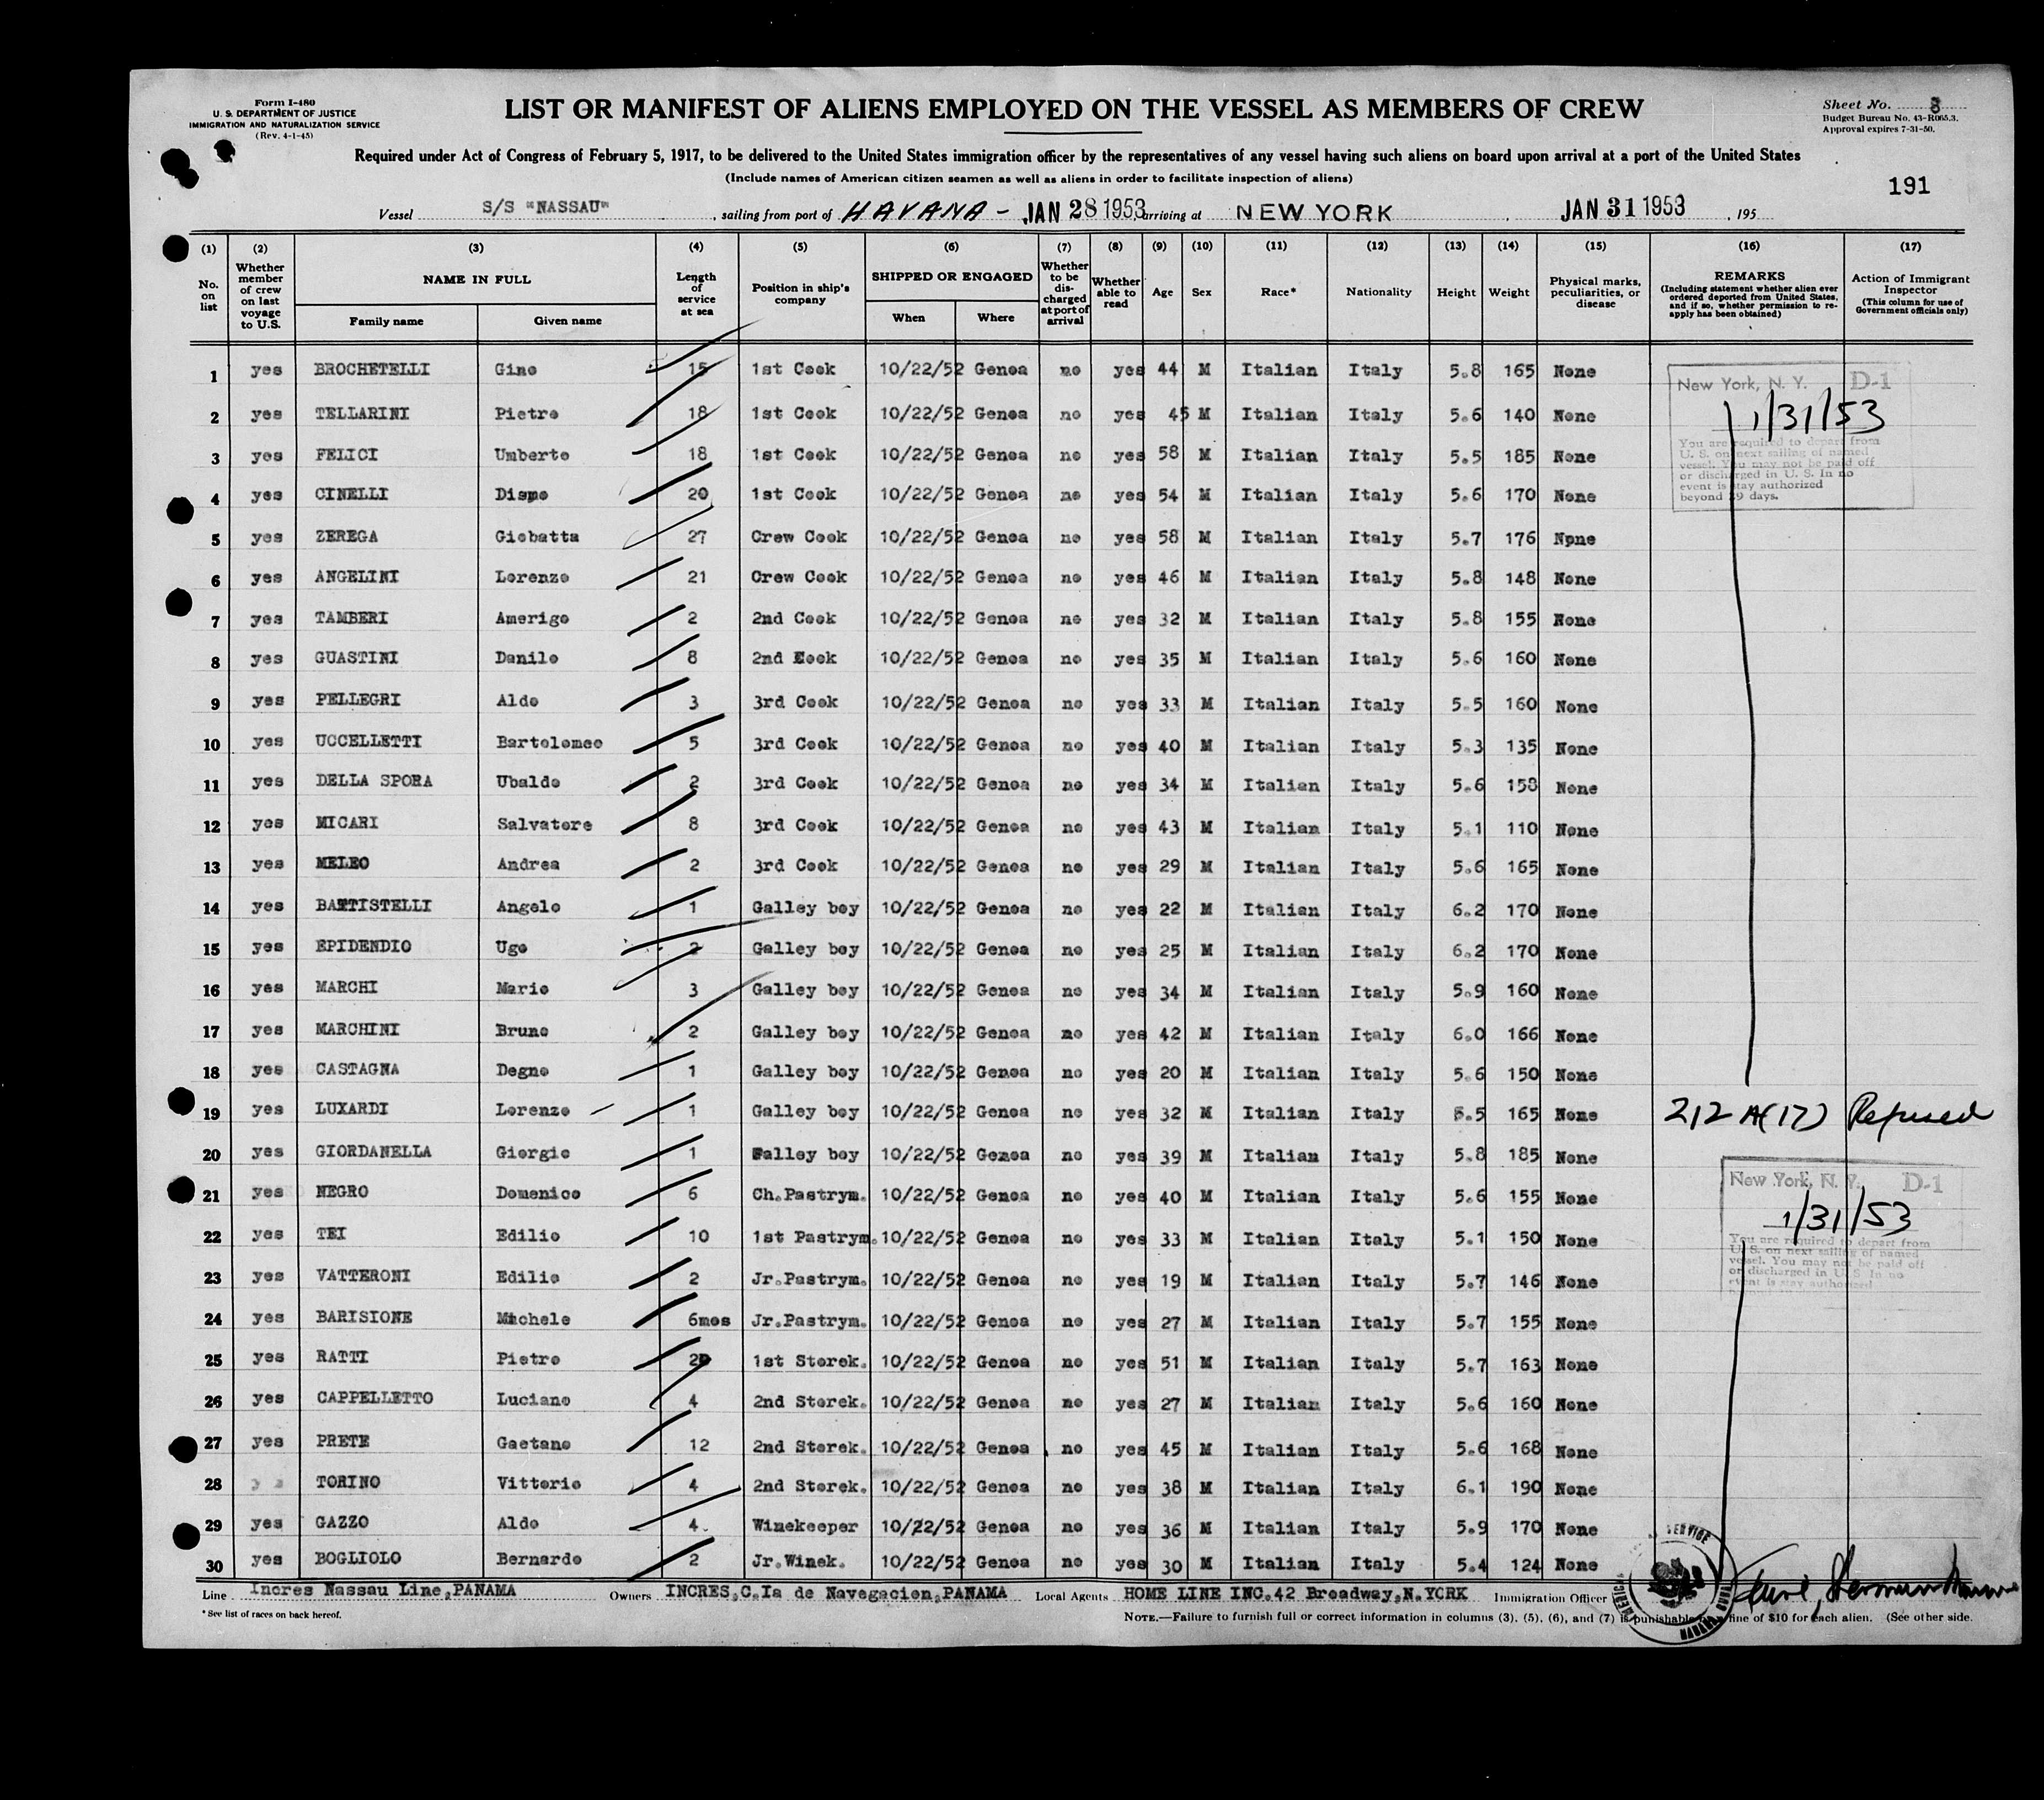 Form I-480
U. S. DEPARTMENT OF JUSTICE
IMMIGRATION AND NATURALIZATION SERVICE
(Rev. 4-1-45)
LIST OR MANIFEST OF ALIENS EMPLOYED ON THE VESSEL AS MEMBERS OF CREW
Sheet No. 8
Budget Bureau No. 43-R065.3.
Approval expires 7-31-50.
Required under Act of Congress of February 5, 1917, to be delivered to the United States immigration officer by the representatives of any vessel having such aliens on board upon arrival at a port of the United States
(Include names of American citizen seamen as well as aliens in order to facilitate inspection of aliens)
191
Vessel S/S "NASSAU", sailing from port of HAVANA - JAN 28 1953, arriving at NEW YORK, JAN 31 1953, 195
(1) (2) (3) (4) (5) (6) (7) (8) (9) (10) (11) (12) (13) (14) (15) (16) (17)
No. on list
Whether member of crew on last voyage to U.S.
NAME IN FULL
Family name
Given name
Length of service at sea
Position in ship's company
SHIPPED OR ENGAGED
When
Where
Whether to be discharged at port of arrival
Whether able to read
Age
Sex
Race*
Nationality
Height
Weight
Physical marks, peculiarities, or disease
REMARKS
(Including statement whether alien ever ordered deported from United States, and if so, whether permission to reapply has been obtained)
Action of Immigrant Inspector
(This column for use of Government officials only)
1 yes BROCHETELLI Gino 15 1st Cook 10/22/52 Genoa no yes 44 M Italian Italy 5.8 165 None
2 yes TELLARINI Pietro 18 1st Cook 10/22/52 Genoa no yes 45 M Italian Italy 5.6 140 None
3 yes FELICI Umberto 18 1st Cook 10/22/52 Genoa no yes 58 M Italian Italy 5.5 185 None
4 yes CINELLI Dismo 20 1st Cook 10/22/52 Genoa no yes 54 M Italian Italy 5.6 170 None
5 yes ZEREGA Giobatta 27 Crew Cook 10/22/52 Genoa no yes 58 M Italian Italy 5.7 176 Npne
6 yes ANGELINI Lorenzo 21 Crew Cook 10/22/52 Genoa no yes 46 M Italian Italy 5.8 148 None
7 yes TAMBERI Amerigo 2 2nd Cook 10/22/52 Genoa no yes 32 M Italian Italy 5.8 155 None
8 yes GUASTINI Danilo 8 2nd Eook 10/22/52 Genoa no yes 35 M Italian Italy 5.6 160 None
9 yes PELLEGRI Aldo 3 3rd Cook 10/22/52 Genoa no yes 33 M Italian Italy 5.5 160 None
10 yes UCCELLETTI Bartolomeo 5 3rd Cook 10/22/52 Genoa no yes 40 M Italian Italy 5.3 135 None
11 yes DELLA SPORA Ubaldo 2 3rd Cook 10/22/52 Genoa no yes 34 M Italian Italy 5.6 158 None
12 yes MICARI Salvatore 8 3rd Cook 10/22/52 Genoa no yes 43 M Italian Italy 5.1 110 None
13 yes MELEO Andrea 2 3rd Cook 10/22/52 Genoa no yes 29 M Italian Italy 5.6 165 None
14 yes BATTISTELLI Angelo 1 Galley boy 10/22/52 Genoa no yes 22 M Italian Italy 6.2 170 None
15 yes EPIDENDIO Ugo 2 Galley boy 10/22/52 Genoa no yes 25 M Italian Italy 6.2 170 None
16 yes MARCHI Mario 3 Galley boy 10/22/52 Genoa no yes 34 M Italian Italy 5.9 160 None
17 yes MARCHINI Bruno 2 Galley boy 10/22/52 Genoa no yes 42 M Italian Italy 6.0 166 None
18 yes CASTAGNA Degno 1 Galley boy 10/22/52 Genoa no yes 20 M Italian Italy 5.6 150 None
19 yes LUXARDI Lorenzo 1 Galley boy 10/22/52 Genoa no yes 32 M Italian Italy 5.5 165 None 212 A(17) Refused
20 yes GIORDANELLA Giorgio 1 Falley boy 10/22/52 Genoa no yes 39 M Italian Italy 5.8 185 None
21 yes NEGRO Domenico 6 Ch.Pastrym. 10/22/52 Genoa no yes 40 M Italian Italy 5.6 155 None
22 yes TEI Edilio 10 1st Pastrym. 10/22/52 Genoa no yes 33 M Italian Italy 5.1 150 None
23 yes VATTERONI Edilio 2 Jr.Pastrym. 10/22/52 Genoa no yes 19 M Italian Italy 5.7 146 None
24 yes BARISIONE Michele 6mos Jr.Pastrym. 10/22/52 Genoa no yes 27 M Italian Italy 5.7 155 None
25 yes RATTI Pietro 20 1st Storek. 10/22/52 Genoa no yes 51 M Italian Italy 5.7 163 None
26 yes CAPPELLETTO Luciano 4 2nd Storek. 10/22/52 Genoa no yes 27 M Italian Italy 5.6 160 None
27 yes PRETE Gaetano 12 2nd Storek. 10/22/52 Genoa no yes 45 M Italian Italy 5.6 168 None
28 TORINO Vittorio 4 2nd Storek. 10/22/52 Genoa no yes 38 M Italian Italy 6.1 190 None
29 yes GAZZO Aldo 4 Winekeeper 10/22/52 Genoa no yes 36 M Italian Italy 5.9 170 None
30 yes BOGLIOLO Bernardo 2 Jr.Winek. 10/22/52 Genoa no yes 30 M Italian Italy 5.4 124 None
New York, N. Y. D-1
1/31/53
You are required to depart from
U. S. on next sailing of named
vessel. You may not be paid off
or discharged in U. S. In no
event is stay authorized
beyond 29 days.
New York, N. Y. D-1
1/31/53
You are required to depart from
U. S. on next sailing of named
vessel. You may not be paid off
or discharged in U. S. In no
event is stay authorized
Line Incres Nassau Line,PANAMA Owners INCRES,C.Ia de Navegacion,PANAMA Local Agents HOME LINE INC.42 Broadway,N.YORK Immigration Officer
* See list of races on back hereof.
NOTE.—Failure to furnish full or correct information in columns (3), (5), (6), and (7) is punishable fine of $10 for each alien. (See other side.